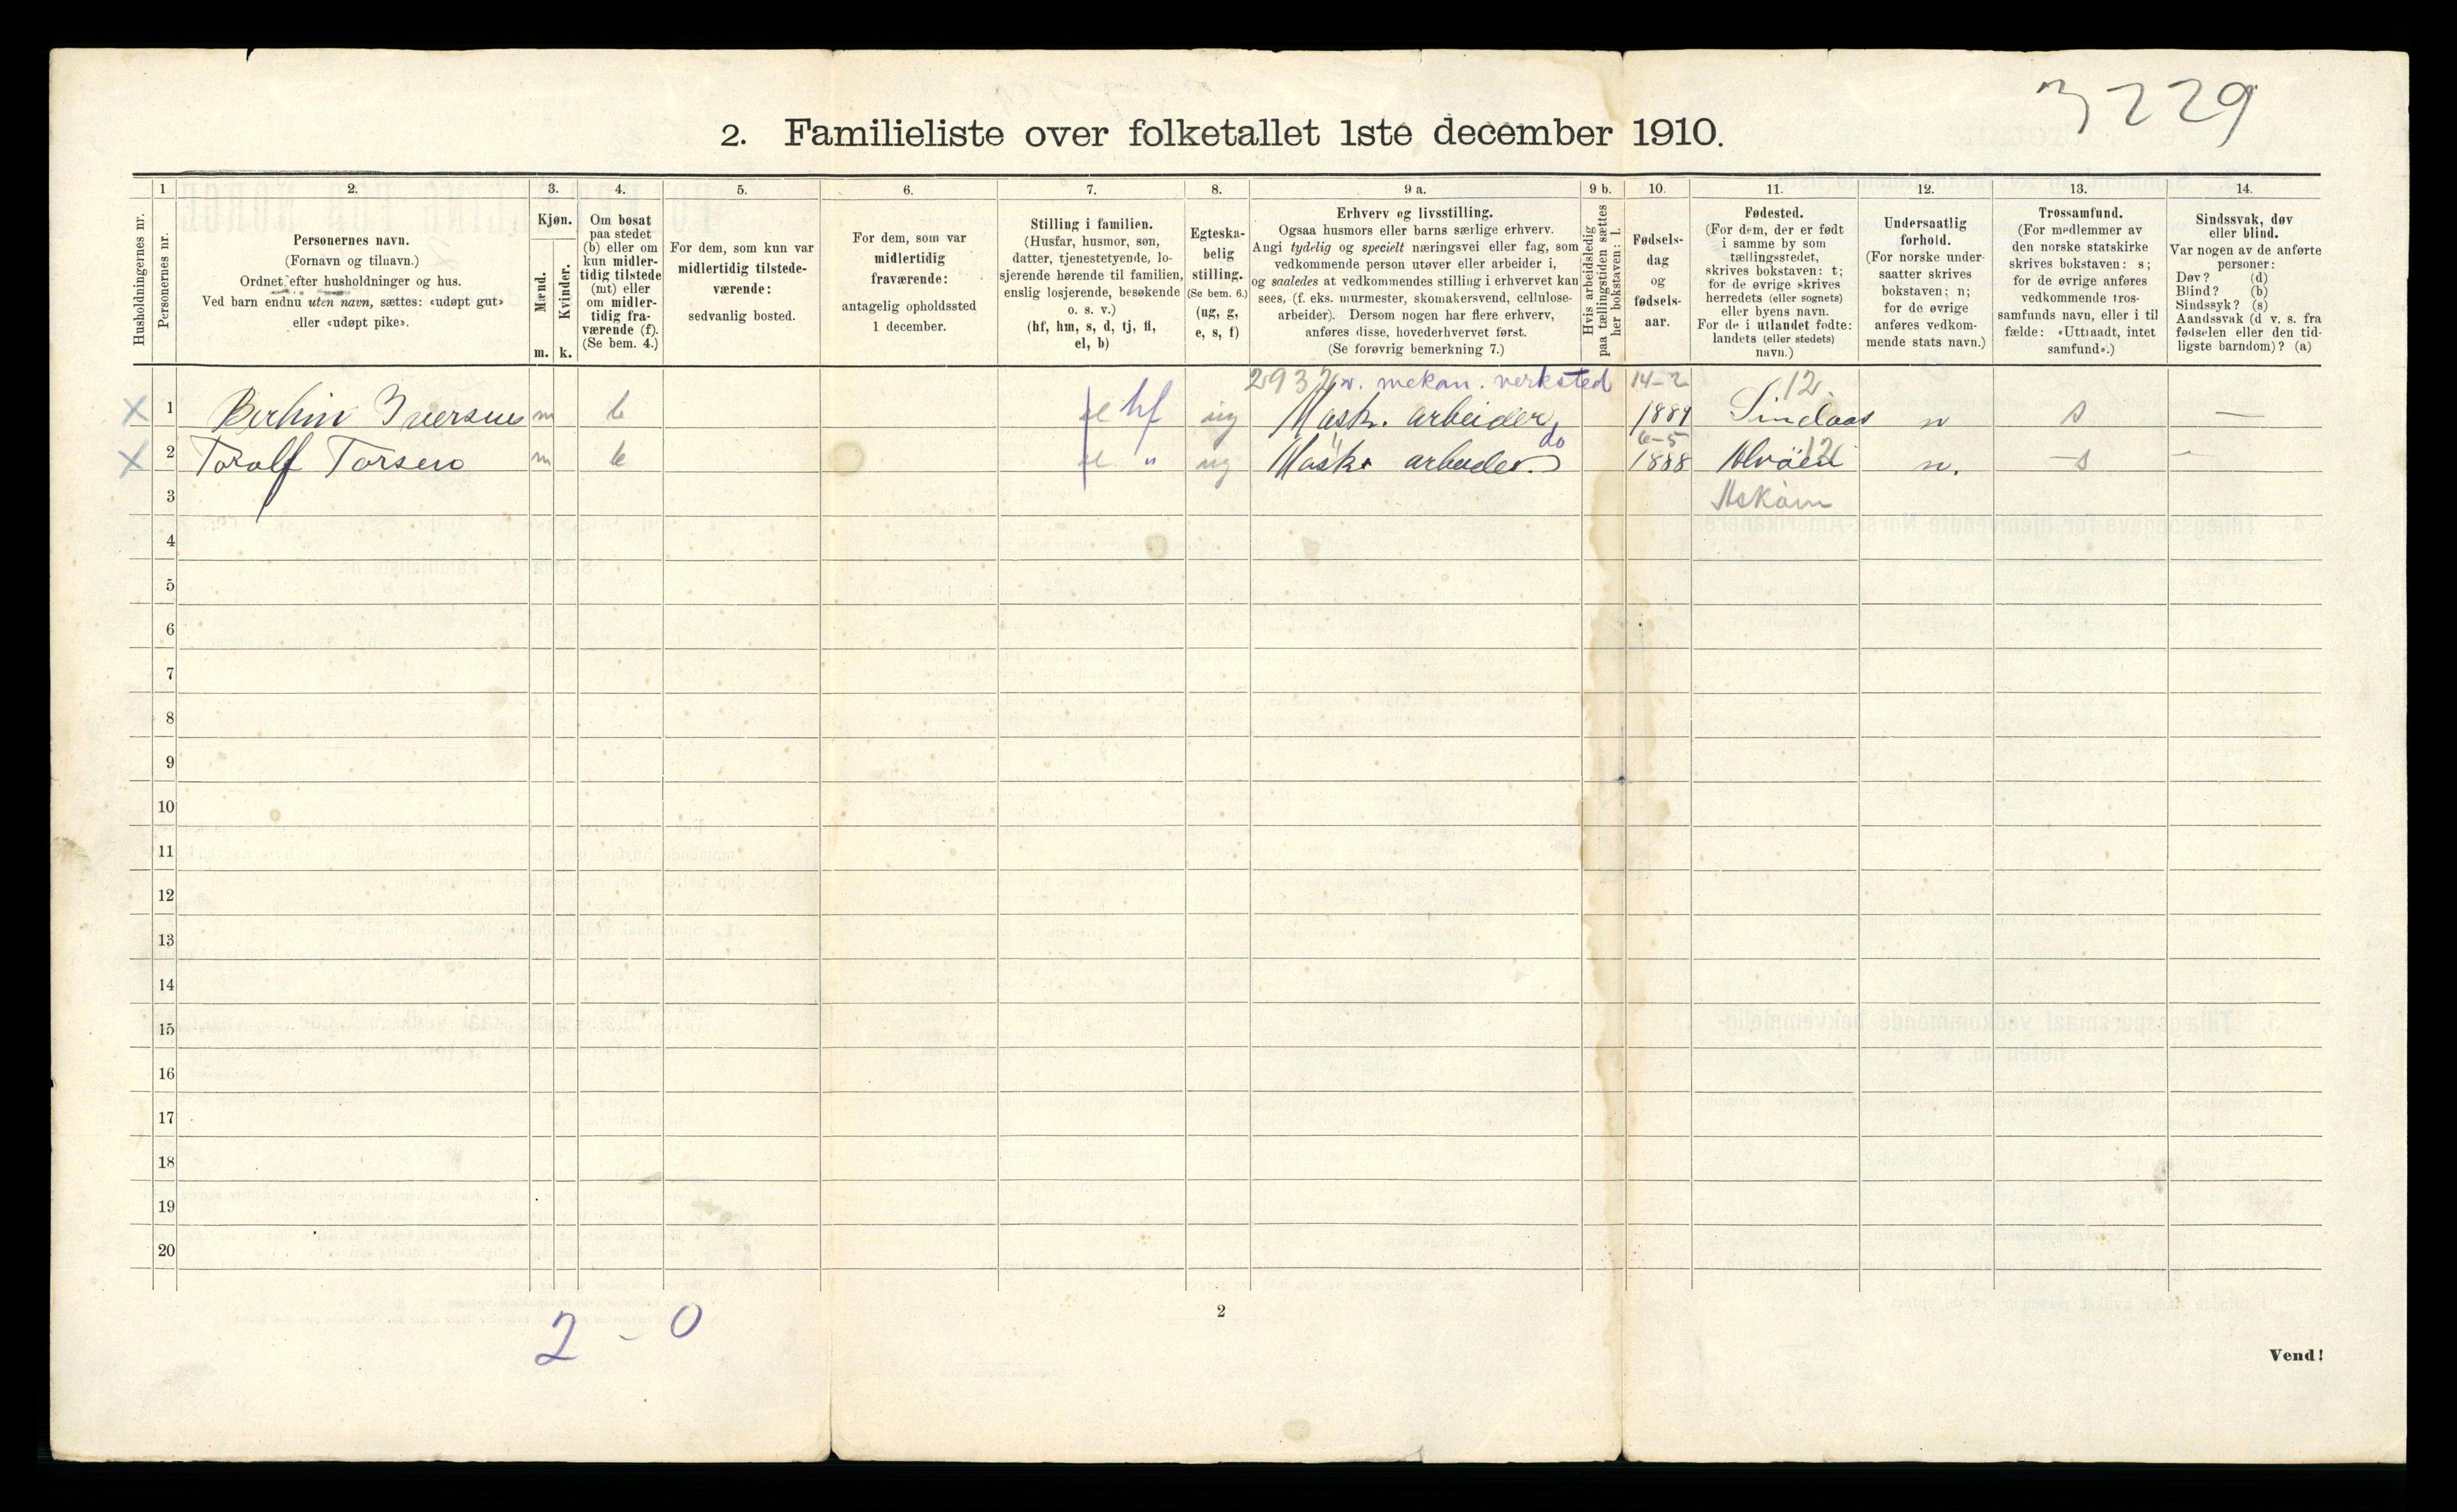 3229
2. Familieliste over folketallet 1ste december 1910.
Husholdningernes nr.
1. Personernes nr.
2. Personernes navn.
(Fornavn og tilnavn.)
Ordnet efter husholdninger og hus.
Ved barn endnu uten navn, sættes: «udøpt gut»
eller «udøpt pike».
3. Kjøn.
Mænd. m.
Kvinder. k.
4. Om bosat
paa stedet
(b) eller om
kun midler-
tidig tilstede
(mt) eller
om midler-
tidig fra-
værende (f).
(Se bem. 4.)
5. For dem, som kun var
midlertidig tilstede-
værende:
sedvanlig bosted.
6. For dem, som var
midlertidig
fraværende:
antagelig opholdssted
1 december.
7. Stilling i familien.
(Husfar, husmor, søn,
datter, tjenestetyende, lo-
sjerende hørende til familien,
enslig losjerende, besøkende
o. s. v.)
(hf, hm, s, d, tj, fl,
el, b)
8. Egteska-
belig
stilling.
(Se bem. 6.)
(ug, g,
e, s, f)
9 a. Erhverv og livsstilling.
Ogsaa husmors eller barns særlige erhverv.
Angi tydelig og specielt næringsvei eller fag, som
vedkommende person utøver eller arbeider i,
og saaledes at vedkommendes stilling i erhvervet kan
sees, (f. eks. murmester, skomakersvend, cellulose-
arbeider). Dersom nogen har flere erhverv,
anføres disse, hovederhvervet først.
(Se forøvrig bemerkning 7.)
9 b. Hvis arbeidsledig
paa tællingstiden sættes
her bokstaven: l.
10. Fødsels-
dag
og
fødsels-
aar.
11. Fødested.
(For dem, der er født
i samme by som
tællingsstedet,
skrives bokstaven: t;
for de øvrige skrives
herredets (eller sognets)
eller byens navn.
For de i utlandet fødte:
landets (eller stedets)
navn.)
12. Undersaatlig
forhold.
(For norske under-
saatter skrives
bokstaven: n;
for de øvrige
anføres vedkom-
mende stats navn.)
13. Trossamfund.
(For medlemmer av
den norske statskirke
skrives bokstaven: s;
for de øvrige anføres
vedkommende tros-
samfunds navn, eller i til
fælde: «Uttraadt, intet
samfund».)
14. Sindssvak, døv
eller blind.
Var nogen av de anførte
personer:
Døv? (d)
Blind? (b)
Sindssyk? (s)
Aandssvak (d v. s. fra
fødselen eller den tid-
ligste barndom)? (a)
v. mekan. verksted 14-2 12
X 1 Iversen m b el hf ug Mask. arbeider, Lindaas n s —
do 6-5
X 2 Torolf Torsen m b el " ug Mask. arbeider. 1888 Alvøen 12 n. s —
3 Askøen
4
5
6
7
8
9
10
11
12
13
14
15
16
17
18
19
20
2 - 0
2
Vend!